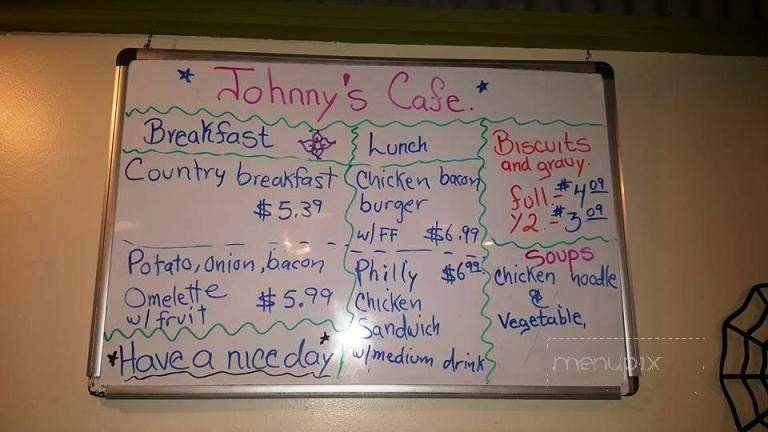 Johnny's Cafe.
Breakfast
Country breakfast
$5.39
Potato, onion, bacon
Omelette $5.99
w/ fruit
Have a nice day
Lunch
Chicken bacon
burger
w/ FF $6.99
Philly $6.99
Chicken
Sandwich
w/ medium drink
Biscuits
and gravy.
full - $4.09
1/2 - $3.09
Soups
chicken noodle
&
Vegetable,
menupix